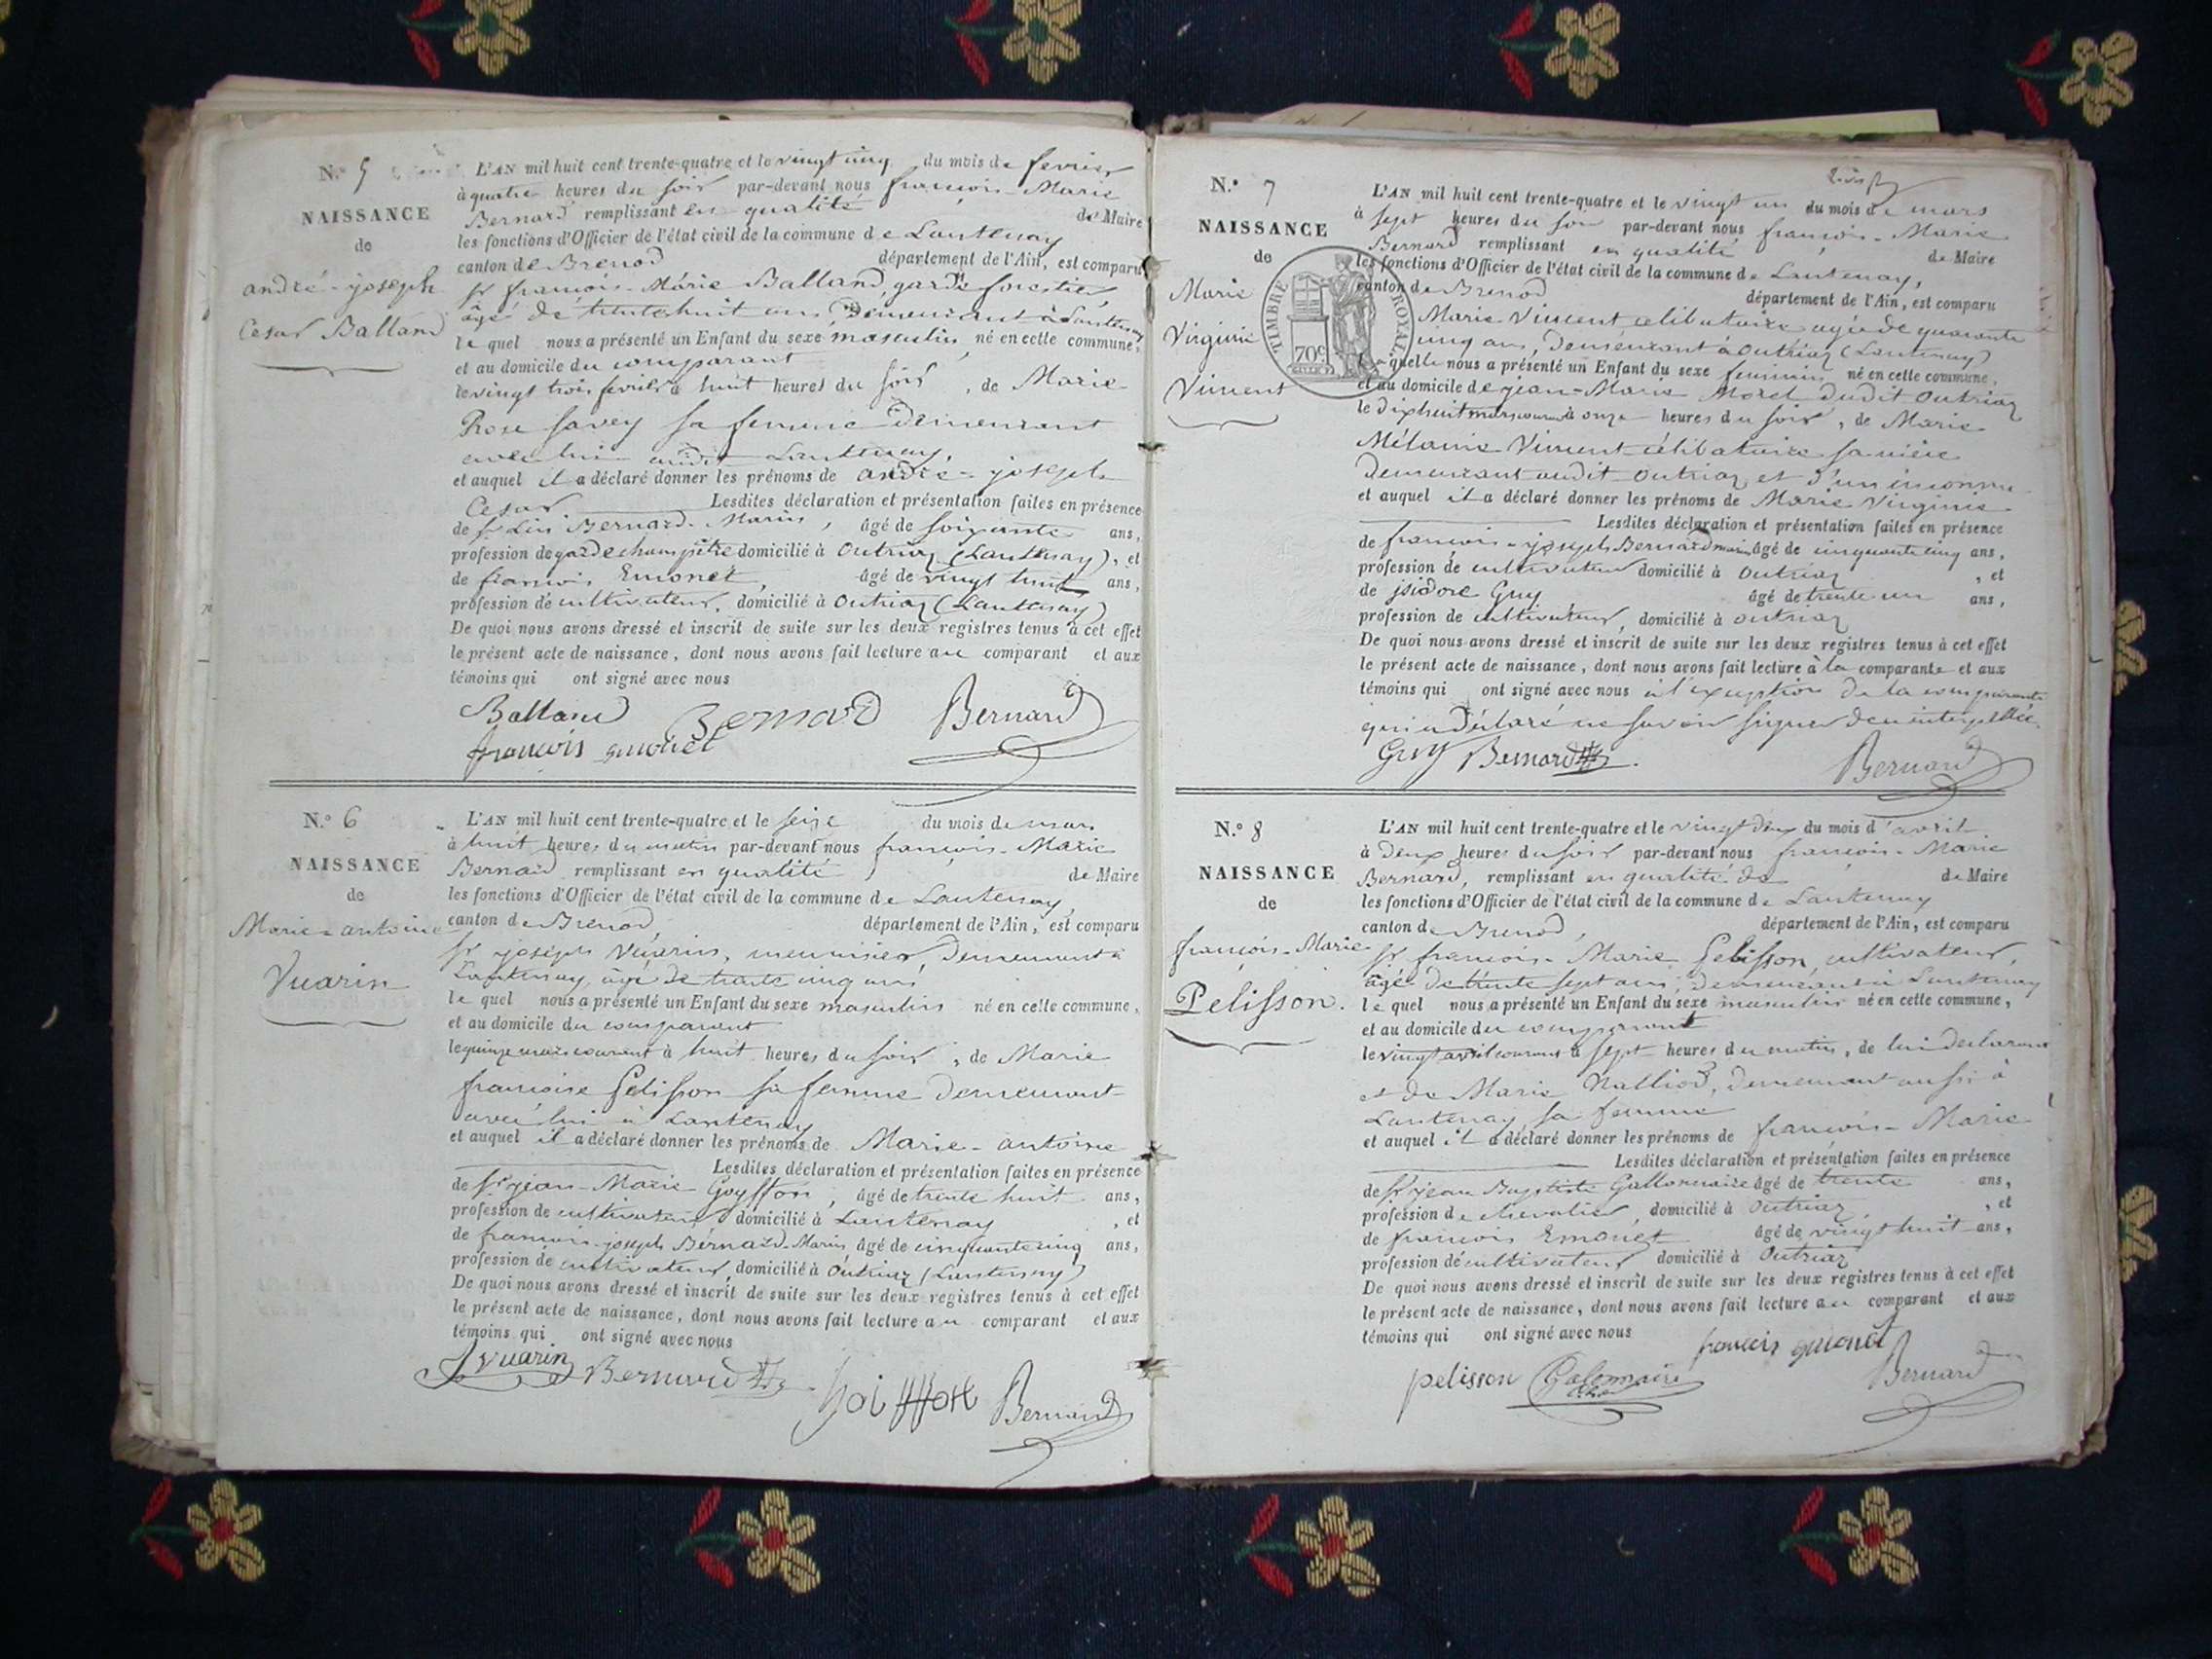 N.° 5
NAISSANCE
de
andré-joseph
Cesar Balland
L'AN mil huit cent trente-quatre et le vingt cinq du mois de fevrier
à quatre heures du soir par-devant nous françois-Marie
Bernard remplissant en qualité de Maire
les fonctions d'Officier de l'état civil de la commune de Lantenay
canton de Brenod département de l'Ain, est comparu
Sr françois-Marie Balland, garde forestier,
âgé de trente huit ans demeurant à Lantenay
lequel nous a présenté un Enfant du sexe masculin né en cette commune,
et au domicile du comparant
le vingt trois fevrier à huit heures du soir, de Marie
Rose Savey sa femme demeurant
avec lui audit Lantenay,
et auquel il a déclaré donner les prénoms de andré-joseph
Cesar Lesdites déclaration et présentation faites en présence
de Sr Bernard-Marin, âgé de soixante ans,
profession de garde champêtre domicilié à Outriaz (Lantenay), et
de françois Emonet, âgé de vingt huit ans,
profession de cultivateur, domicilié à Outriaz (Lantenay)
De quoi nous avons dressé et inscrit de suite sur les deux registres tenus à cet effet
le présent acte de naissance, dont nous avons fait lecture au comparant et aux
témoins qui ont signé avec nous
Balland Bernard Bernard
françois emonet
N.° 6
NAISSANCE
de
Marie-antoine
Vuarin
L'AN mil huit cent trente-quatre et le seize du mois de mars
à huit heures du matin par-devant nous françois-Marie
Bernard remplissant en qualité de Maire
les fonctions d'Officier de l'état civil de la commune de Lantenay,
canton de Brenod, département de l'Ain, est comparu
Sr joseph Vuarin, meunier, demeurant à
Lantenay, âgé de trente cinq ans,
lequel nous a présenté un Enfant du sexe masculin né en cette commune,
et au domicile du comparant
le quinze mars courant à huit heures du soir, de Marie
françoise Pelisson sa femme demeurant
avec lui à Lantenay
et auquel il a déclaré donner les prénoms de Marie-antoine
Lesdites déclaration et présentation faites en présence
de Sr jean-Marie Goyffon, âgé de trente huit ans,
profession de cultivateur domicilié à Lantenay, et
de françois-joseph Bernard-Marin, âgé de cinquante cinq ans,
profession de cultivateur, domicilié à Outriaz (Lantenay)
De quoi nous avons dressé et inscrit de suite sur les deux registres tenus à cet effet
le présent acte de naissance, dont nous avons fait lecture au comparant et aux
témoins qui ont signé avec nous
Vuarin Bernard Goiffon Bernard
N.° 7
NAISSANCE
de
Marie
Virginie
Vincent
TIMBRE ROYAL
70c
L'AN mil huit cent trente-quatre et le vingt un du mois de mars
à sept heures du soir par-devant nous françois-Marie
Bernard remplissant en qualité de Maire
les fonctions d'Officier de l'état civil de la commune de Lantenay,
canton de Brenod département de l'Ain, est comparu
Marie Vincent, célibataire agée de quarante
cinq ans, demeurant à Outriaz (Lantenay)
laquelle nous a présenté un Enfant du sexe feminin né en cette commune,
et au domicile de jean-Marie Morel dudit Outriaz
le dix huit mars courant à onze heures du soir, de Marie
Mélanie Vincent célibataire sa nièce
demeurant audit Outriaz et d'un inconnu
et auquel il a déclaré donner les prénoms de Marie Virginie
Lesdites déclaration et présentation faites en présence
de françois-joseph Bernard marin âgé de cinquante cinq ans,
profession de cultivateur domicilié à Outriaz, et
de isidore Guy âgé de trente un ans,
profession de cultivateur, domicilié à Outriaz
De quoi nous avons dressé et inscrit de suite sur les deux registres tenus à cet effet
le présent acte de naissance, dont nous avons fait lecture à la comparante et aux
témoins qui ont signé avec nous à l'exception de la comparante
qui a déclaré ne savoir signer de ce interpellée.
Guy Bernard Bernard
N.° 8
NAISSANCE
de
françois-Marie
Pelisson.
L'AN mil huit cent trente-quatre et le vingt deux du mois d'avril
à deux heures du soir par-devant nous françois-Marie
Bernard, remplissant en qualité de de Maire
les fonctions d'Officier de l'état civil de la commune de Lantenay
canton de Brenod, département de l'Ain, est comparu
Sr françois-Marie Pelisson, cultivateur,
âgé de trente sept ans, demeurant à Lantenay
lequel nous a présenté un Enfant du sexe masculin né en cette commune,
et au domicile du comparant
le vingt avril courant à sept heures du matin, de lui declarant
et de Marie Nalliod, demeurant aussi à
Lantenay sa femme
et auquel il a déclaré donner les prénoms de françois-Marie
Lesdites déclaration et présentation faites en présence
de Sr jean Baptiste âgé de trente ans,
profession de domicilié à Outriaz, et
de françois Emonet âgé de vingt huit ans,
profession de cultivateur domicilié à Outriaz
De quoi nous avons dressé et inscrit de suite sur les deux registres tenus à cet effet
le présent acte de naissance, dont nous avons fait lecture au comparant et aux
témoins qui ont signé avec nous françois emonet
pelisson Bernard